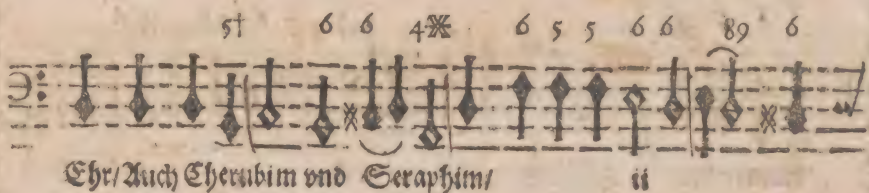 5† 6 6 4※ 6 5 5 6 6 89 6
Ehr/Auch Cherubim vnd Seraphim/ ij